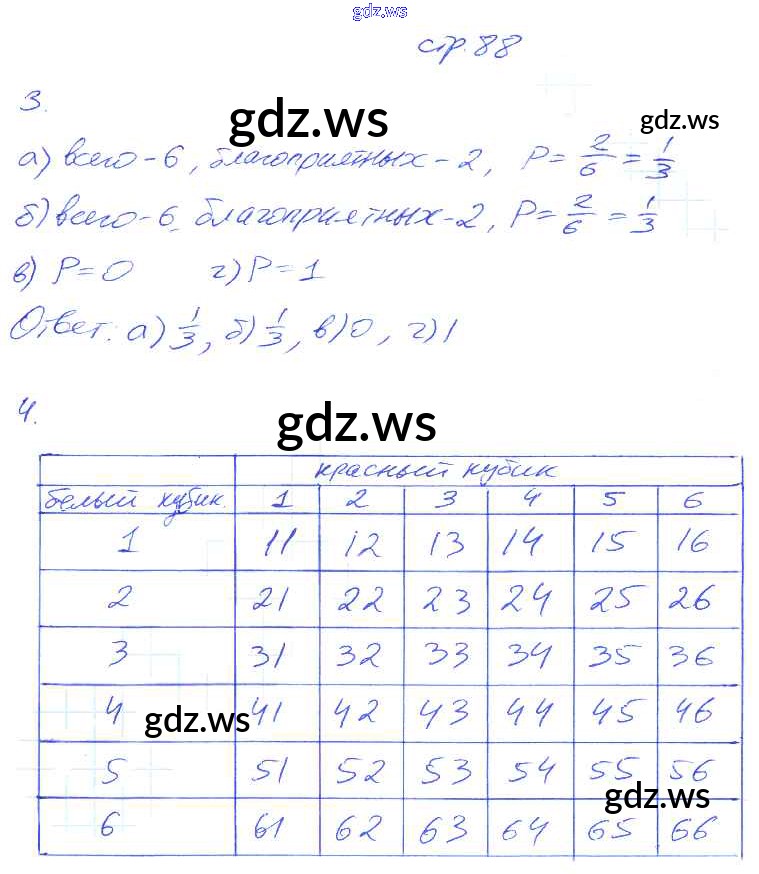 gdz.ws
стр. 88
3.
gdz.ws
gdz.ws
а) всего - 6, благоприятных - 2, P = 2/6 = 1/3
б) всего - 6, благоприятных - 2, P = 2/6 = 1/3
в) P = 0 г) P = 1
Ответ: а) 1/3, б) 1/3, в) 0, г) 1
4.
gdz.ws
красный кубик
белый кубик. 1 2 3 4 5 6
1 11 12 13 14 15 16
2 21 22 23 24 25 26
3 31 32 33 34 35 36
4 41 42 43 44 45 46
gdz.ws
5 51 52 53 54 55 56
gdz.ws
6 61 62 63 64 65 66